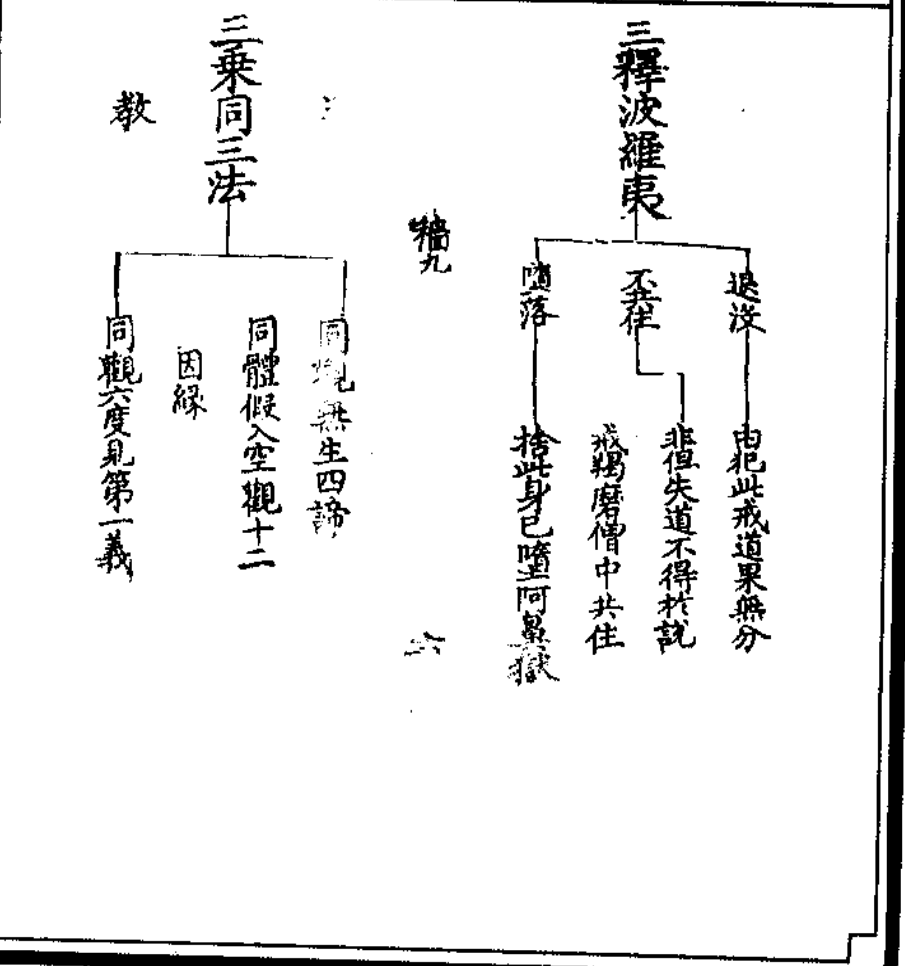 三釋波羅夷
退沒
由犯此戒道果無分
不共住
非但失道不得於說
戒羯磨僧中共住
墮落
捨此身已墮阿鼻獄
九
六
三乘同三法
教
同觀無生四諦
同體假入空觀十二
因緣
同觀六度見第一義